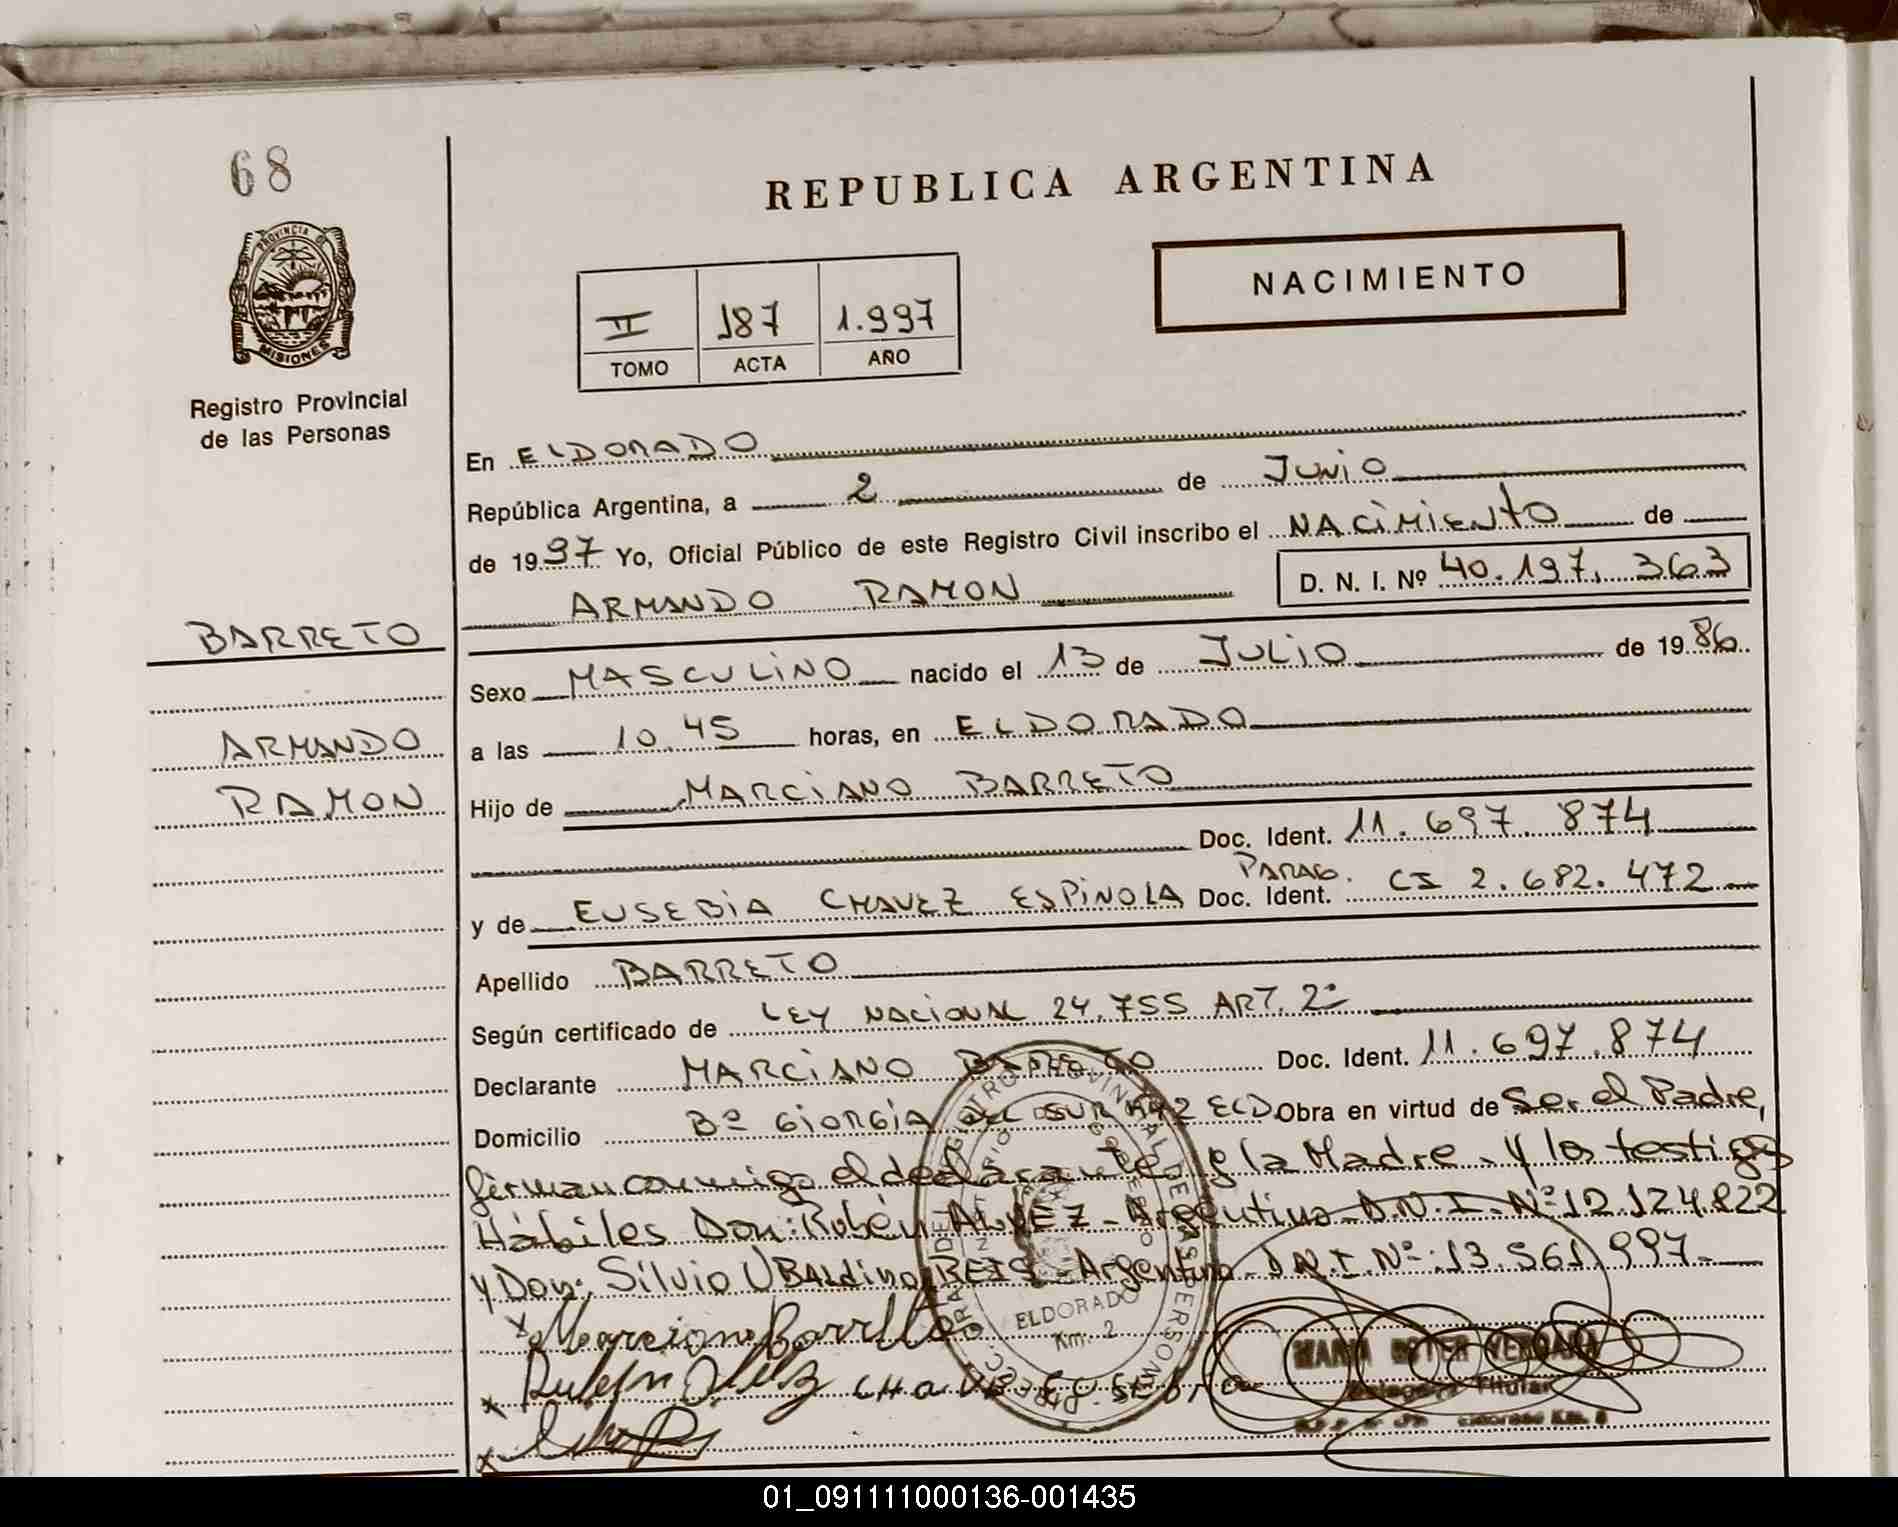 68
REPUBLICA ARGENTINA
PROVINCIA DE
MISIONES
NACIMIENTO
II 187 1.997
TOMO ACTA AÑO
Registro Provincial
de las Personas
En ELDORADO
República Argentina, a 2 de JUNIO
de 1997 Yo, Oficial Público de este Registro Civil inscribo el NACIMIENTO de
ARMANDO RAMON D. N. I. Nº 40.197.363
BARRETO
Sexo MASCULINO nacido el 13 de JULIO de 1986
ARMANDO
a las 10.45 horas, en ELDORADO
RAMON
Hijo de MARCIANO BARRETO
Doc. Ident. 11.697.874
PARAG.
y de EUSEBIA CHAVEZ ESPINOLA Doc. Ident. CI 2.682.472
Apellido BARRETO
Según certificado de LEY NACIONAL 24.755 ART. 2º
Declarante MARCIANO BARRETO Doc. Ident. 11.697.874
Domicilio Bº GIORGIA DEL SUR ELD. Obra en virtud de Ser el Padre,
firman conmigo el declarante y la Madre y los testigos
Hábiles Don: Rubén ALVEZ - Argentino - D.N.I. Nº 12.124.822
y Don: Silvio UBALdino REIS - Argentino - D.N.I. Nº: 13.561.997-
x Marciano Barreto
ELDORADO
Km. 2
x Ruben Alvez CHAVEZ EUSEBIA
MARIA ESTER VERGARA
Delegada Titular
x
01_091111000136-001435